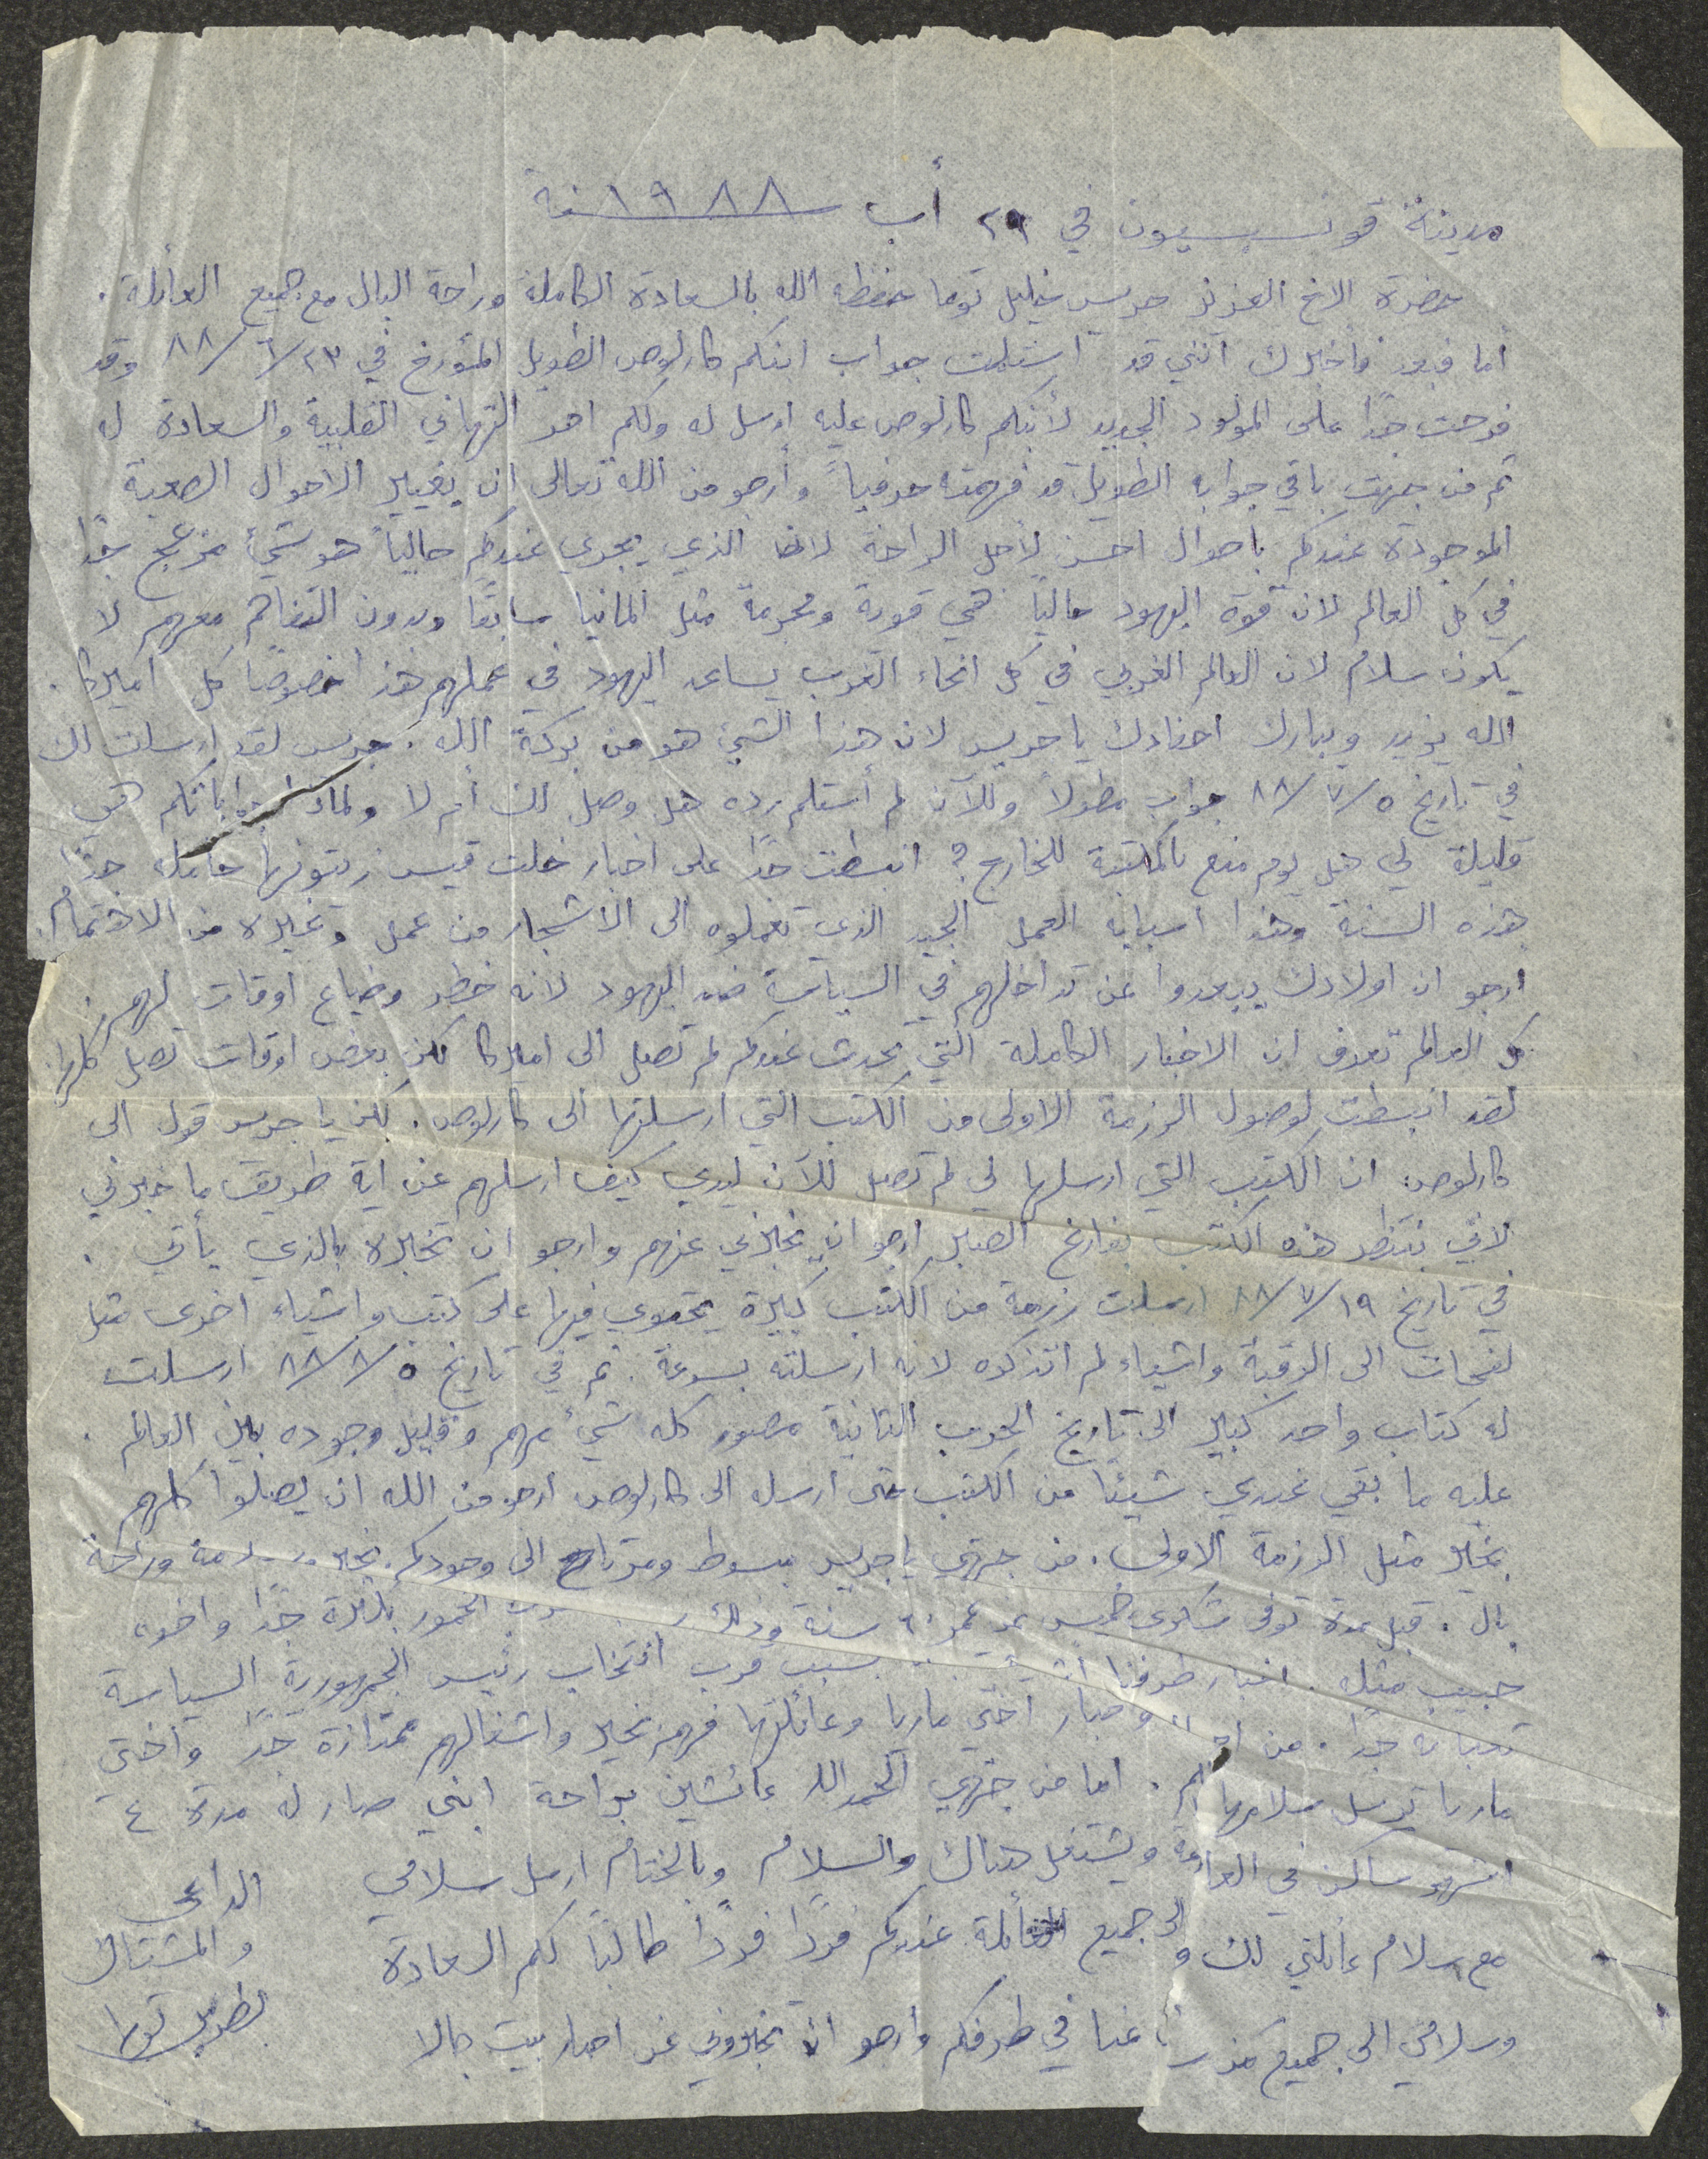 مدينة قونسبسيون في ٢٩ أب سنة ١٩٨٨
حضرة الاخ العزيز جريس خليل توما حفظه الله بالسعادة الكاملة وراحة البال مع جميع العائلة.
أما فبعد فأخبرك انني قد استلمت جواب ابنكم كارلوص الطويل المؤرخ في ٢٣/٦/٨٨ وقد
فرحت جدًا على المولود الجديد لأبنكم كارلوص عليه ارسل له ولكم احر التهاني القلبية والسعادة له
ثم من جهت باقي جوابه الطويل قد فهمته حرفياً وأرجو من الله تعالى ان يغيير الاحوال الصعبة
الموجودة عندكم باحوال احسن لأجل الراحة لان الذي يجري عندكم حالياً هو شيء مزعج جدًا
في كل العالم لان قوة اليهود حالياً هي قوية ومجرمة مثل المانيا سابقًا وبدون التفاهم معهم لا
يكون سلام لان العالم الغربي في كل انحاء الغرب يساعد اليهود في عملهم هذا خصوصًا كل اميركا.
الله يزيد ويبارك احفادك يا جريس لان هذا الشيء هو من بركة الله. جريس لقد ارسلت لك
في تاريخ ٥/٧/٨٨ جواب مطولاً وللآن لم أستلم رده هل وصل لك أم لا ولماذا جواباتكم هي
قليلة لي هل يوم منع بالمكتبة للخارج؟ انبسطت جدًا على اخبار خلت قيس زيتونها حامله جدًا
هذه السنة وهذا اسبابه العمل الجيد الذي تعملوه الى الأشجار من عمل وغيره من الاهتمام.
ارجو ان اولادك يبعدوا عن تداخلهم في السياسة ضد اليهود لانه خطر وضياع اوقات لهم.
كل العالم تعرف ان الاخبار الكاملة التي تحدث عندكم لم تصل الى اميركا لكن بعض اوقات تصل كلها.
لقد انبسطت لوصول الرزمة الاولى من الكتب التي ارسلتها الى كارلوص. لكن يا جريس قول الى
كارلوص ان الكتب التي ارسلها لي لم تصل للآن ليدي كيف ارسلهم عن اية طريق ما خبرني
لاني بنتظر هذه الكتب بفارغ الصبر ارجو ان يخبرني عنهم وارجو ان تخبره بالذي يأتي.
في تاريخ ١٩/٧/٨٨ ارسلت رزمة من الكتب كبيرة يحتوي فيها على كتب واشياء اخرى مثل
لفحات الى الرقبة واشياء لم اتذكره لانه ارسلته بسرعة. ثم في تاريخ ٥/٨/٨٨ ارسلت
له كتاب واحد كبير الى تاريخ الحرب الثانية مصور كله شيء مهم وقليل وجوده بين العالم.
عليه ما بقي عندي شيئًا من الكتب حتى ارسله الى كارلوص ارجو من الله ان يصلوا كلهم
بخير مثل الرزمة الاولى. من جهتي يا جريس مبسوط ومرتاح الى وجودكم بخير وسلامة وراحة
بال. قبل مدة توفى شكري خميس عن عمر ٦٠ سنة وذلك بسبب شرب الخمور بكثرة جدًا واخوه
حبيب مثله. اخبار طرفنا بسبب قرب انتخاب رئيس الجمهورية السياسة
تعبانه جدًا. من اخبار اختي ماريا وعائلتها فهم بخير واشغالهم ممتازة جدًا واختي
ماريا ترسل سلامها لكم. اما من جهتي الحمد الله عائشين براحة ابني صار له مدة ٤
اشهر ساكن في العاصمة ويشتغل هناك والسلام وبالختام ارسل سلامي
مع سلام عائلتي لك والى جميع العائلة عندكم فردًا فردًا طالبًا لكم السعادة
وسلامي الى جميع من عنا في طرفكم وارجو ان تخبروني عن اخبار بيت جالا
الداعي
والمشتاق
توما